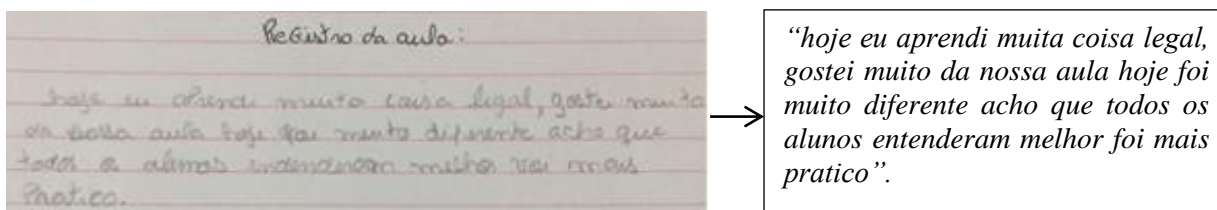 Registro da aula:
hoje eu aprendi muito coisa legal, goste muito
da nossa aula hoje foi muito diferente acho que
todos os alunos entenderam melhor voi mais
Pratico.
“hoje eu aprendi muita coisa legal,
gostei muito da nossa aula hoje foi
muito diferente acho que todos os
alunos entenderam melhor foi mais
pratico”.